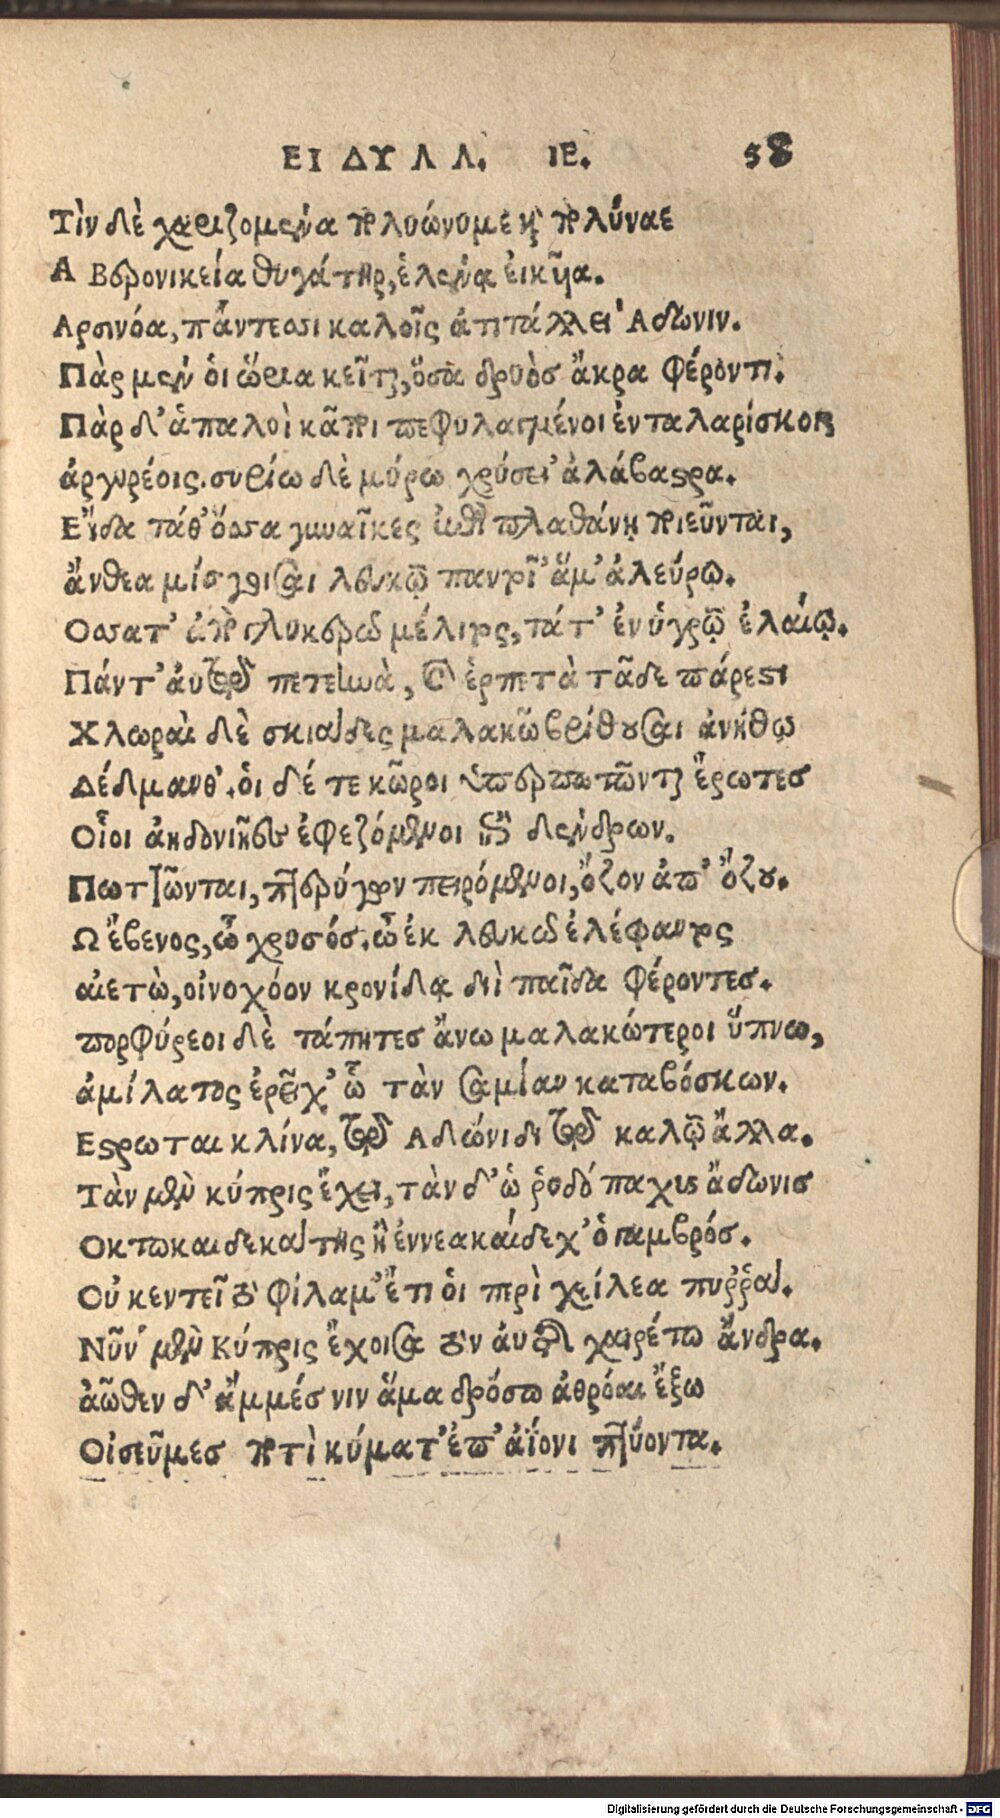 ΕΙΔΥΛΛ. ΙΕ. 58
Τὶν δὲ χαριζομένα πολυώνυμε καὶ πολύναε
Α Βερονικεία θυγάτηρ, ἑλένᾳ εἰκῆα.
Αρσινόα, πάντεσσι καλοῖς ἀτιτάλλει Ἀδωνιν.
Πὰρ μὲν ὁι ὥρια κεῖται, ὅσα δρυὸσ ἄκρα φέροντι.
Πὰρ δ' ἁπαλοὶ κᾶποι πεφυλαγμένοι ἐν ταλαρίσκοις
ἀργυρέοις. συρίω δὲ μύρω χρύσει' ἀλάβαστρα.
Εἴδατα θ' ὅσσα γυναῖκες ἐπὶ πλαθάνῃ ποιεῦνται,
ἄνθεα μίσγοισαι λευκῷ παντοῖ' ἅμ' ἀλεύρῳ.
Οσσα τ' ἀπὸ γλυκερῶ μέλιτος, τά τ' ἐν ὑγρῷ ἐλαίῳ.
Πάντ' ἀυτῷ πετεινὰ, καὶ ἑρπετὰ τᾶδε πάρεστι
Χλωραὶ δὲ σκιάδες μαλακῶ βρίθουσαι ἀνήθῳ
Δέδμανθ'. ὁι δέ τε κῶροι ὑπερπωτῶνται ἔρωτεσ
Οἷοι ἀηδονιῆες ἐφεζόμενοι ἐπὶ δένδρων.
Πωτῶνται, πτερύγων πειρόμενοι, ὄζον ἀπ' ὄζου.
Ω ἔβενος, ὦ χρυσός. ὦ ἐκ λευκῶ ἐλέφαντος
αἰετὼ, οἰνοχόον κρονίδᾳ διὶ παῖδα φέροντεσ.
πορφύρεοι δὲ τάπητεσ ἄνω μαλακώτεροι ὕπνω,
ἁ μίλατος ἐρεῖ χ' ὦ τὰν σαμίαν καταβόσκων.
Εστρωται κλίνα, τῷ Αδώνιδι τῷ καλῷ ἄλλα.
Τὰν μὲν κύπρις ἔχει, τὰν δ' ὡ ῥοδόπαχυς ἄδωνισ
Οκτωκαιδεκάτης ἢ ἐννεακαίδεχ' ὁ γαμβρόσ.
Οὐ κεντεῖ τὸ φίλαμ' ἔτι ὁι περὶ χείλεα πυῤῥά.
Νῦν μὲν Κύπρις ἔχοισα τὸν ἀυτᾶς χαιρέτω ἄνδρα.
ἀῶθεν δ' ἄμμές νιν ἅμα δρόσῳ ἀθρόαι ἔξω
Οἰσεῦμεσ ποτὶ κύματ' ἐπ' ἀϊόνι πτύοντα.
Digitalisierung gefördert durch die Deutsche Forschungsgemeinschaft - DFG